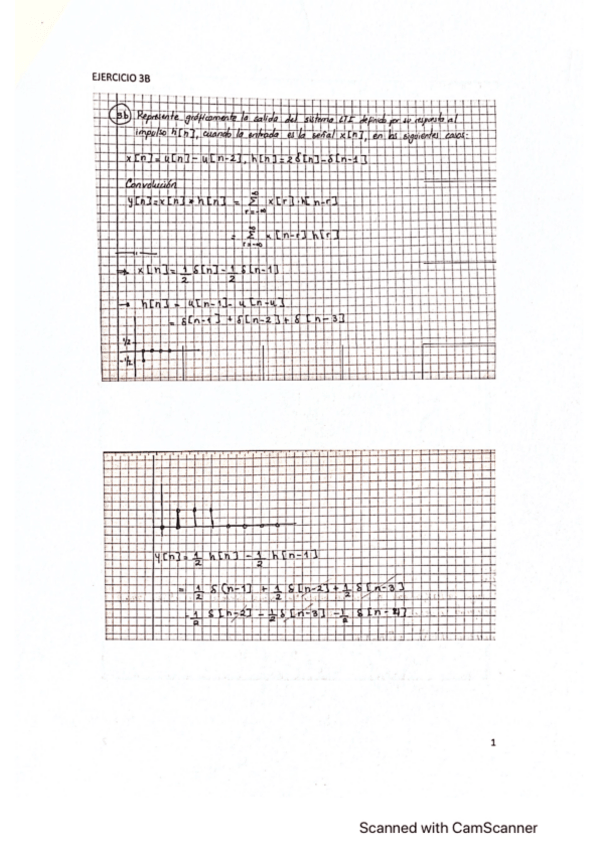 EJERCICIO 3B
3b Represente gráficamente la salida del sistema LTI definido por su respuesta al
impulso h[n], cuando la entrada es la señal x[n], en los siguientes casos:
x[n] = u[n] - u[n-2], h[n] = 2δ[n] - δ[n-1]
Convolución
y[n] = x[n] * h[n] = ∞ Σ r=-∞ x[r]·h[n-r]
= ∞ Σ r=-∞ x[n-r] h[r]
→ x[n] = 1/2 δ[n] - 1/2 δ[n-1]
→ h[n] = u[n-1] - u[n-4]
= δ[n-1] + δ[n-2] + δ[n-3]
1/2
-1/2
y[n] = 1/2 h[n] - 1/2 h[n-1]
= 1/2 δ[n-1] + 1/2 δ[n-2] + 1/2 δ[n-3]
-1/2 δ[n-2] - 1/2 δ[n-3] - 1/2 δ[n-4]
1
Scanned with CamScanner